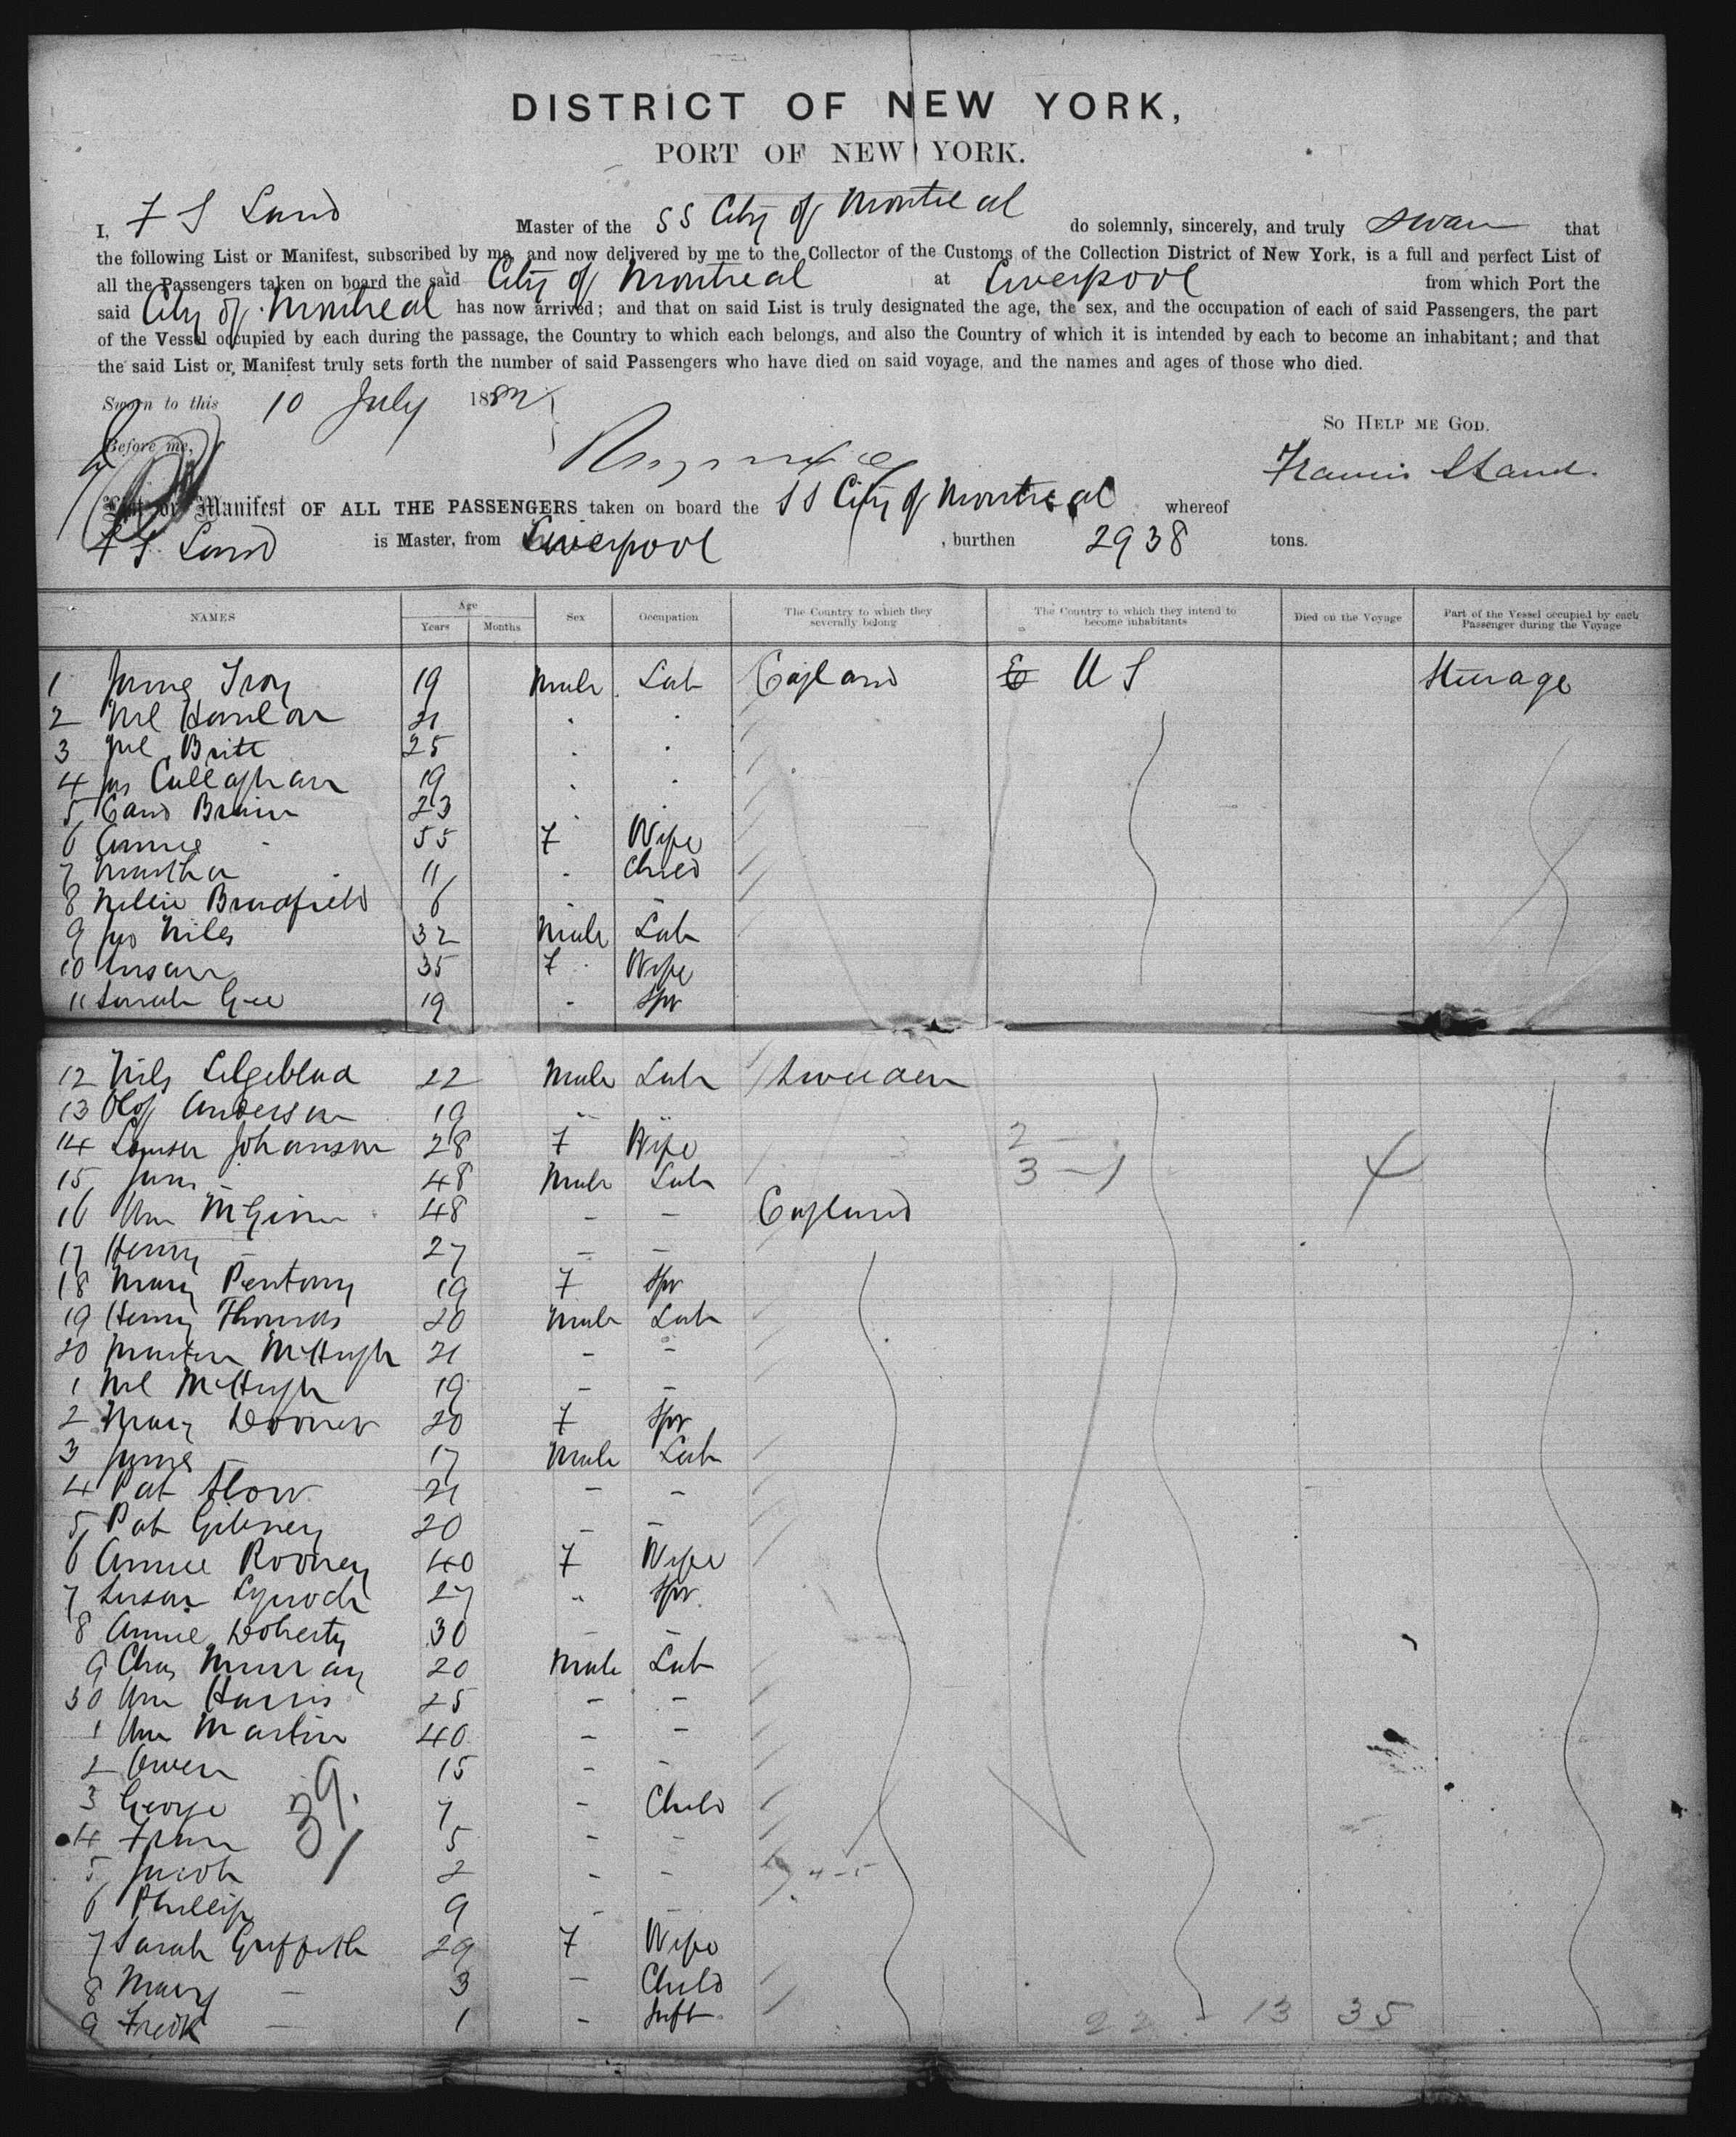 DISTRICT OF NEW YORK,
PORT OF NEW YORK.
I, F S Land Master of the SS City of Montreal do solemnly, sincerely, and truly swear that
the following List or Manifest, subscribed by me, and now delivered by me to the Collector of the Customs of the Collection District of New York, is a full and perfect List of
all the Passengers taken on board the said City of Montreal at Liverpool from which Port the
said City of Montreal has now arrived; and that on said List is truly designated the age, the sex, and the occupation of each of said Passengers, the part
of the Vessel occupied by each during the passage, the Country to which each belongs, and also the Country of which it is intended by each to become an inhabitant; and that
the said List or Manifest truly sets forth the number of said Passengers who have died on said voyage, and the names and ages of those who died.
Sworn to this 10 July 188
So Help me God.
Before me,
Francis S Land.
List or Manifest OF ALL THE PASSENGERS taken on board the SS City of Montreal whereof
F S. Land is Master, from Liverpool, burthen 2938 tons.
NAMES Age Years Months Sex Occupation The Country to which they severally belong The Country to which they intend to become inhabitants Died on the Voyage Part of the Vessel occupied by each Passenger during the Voyage
1 James Troy 19 Male Lab England U S Steerage
2 Ml Hanlon 21
3 Britt 25
4 Jas Callaghan 19
5 23
6 Annie 55 F Wife
7 Martha 11 - Child
8 Nellie Bradfield 6 - -
9 Jno Niles 32 Male Lab
10 Susan 35 F Wife
11 Sarah Gee 19 - Spr
12 Nils Lilgeblad 22 Male Lab Sweden
13 Olof Anderson 19 -
14 Louisa Johanson 28 F Wife 2 -
15 - 48 Male Lab 3 - 1
16 Wm McGinn 48 - - England
17 Henry - 27 - -
18 Mary Pentony 19 F Spr
19 Henry Thomas 20 Male Lab
20 Martin McHugh 21 - -
1 Ml McHugh 19 - -
2 Mary 20 F Spr
3 James - 17 Male Lab
4 Pat 21 - -
5 Pat Gibney 20 - -
6 Annie Rooney 40 F Wife
7 Susan 27 " Spr
8 Annie Doherty 30 - -
9 Chas Murray 20 Male Lab
30 Wm Harris 25 - -
1 Wm Martin 40 - -
2 Owen 15 - -
3 George 7 - Child
39
4 5 - -
5 Jacob 2 - -
6 Phillip 9 - -
7 Sarah Griffith 29 F Wife
8 Mary - 3 - Child
9 Fredk - 1 - Inft
22 13 35